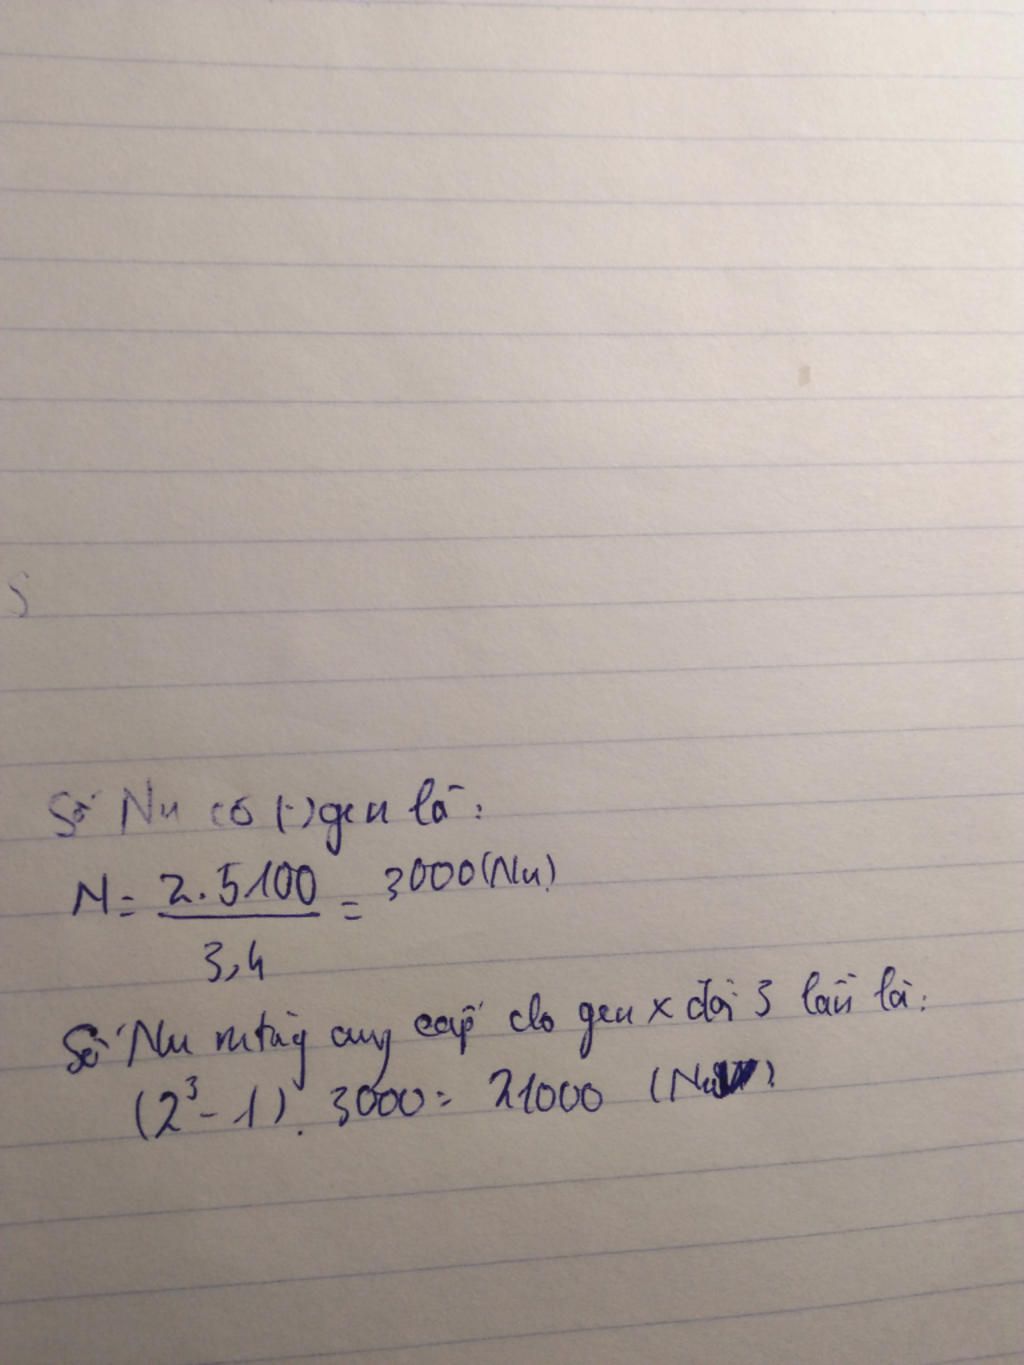 Số Nu có (-) gen là:
N = 2.5100 / 3,4 = 3000 (Nu)
Số Nu mtrg cung cấp cho gen x đôi 3 lần là:
(2³ - 1) . 3000 = 21000 (Nu)